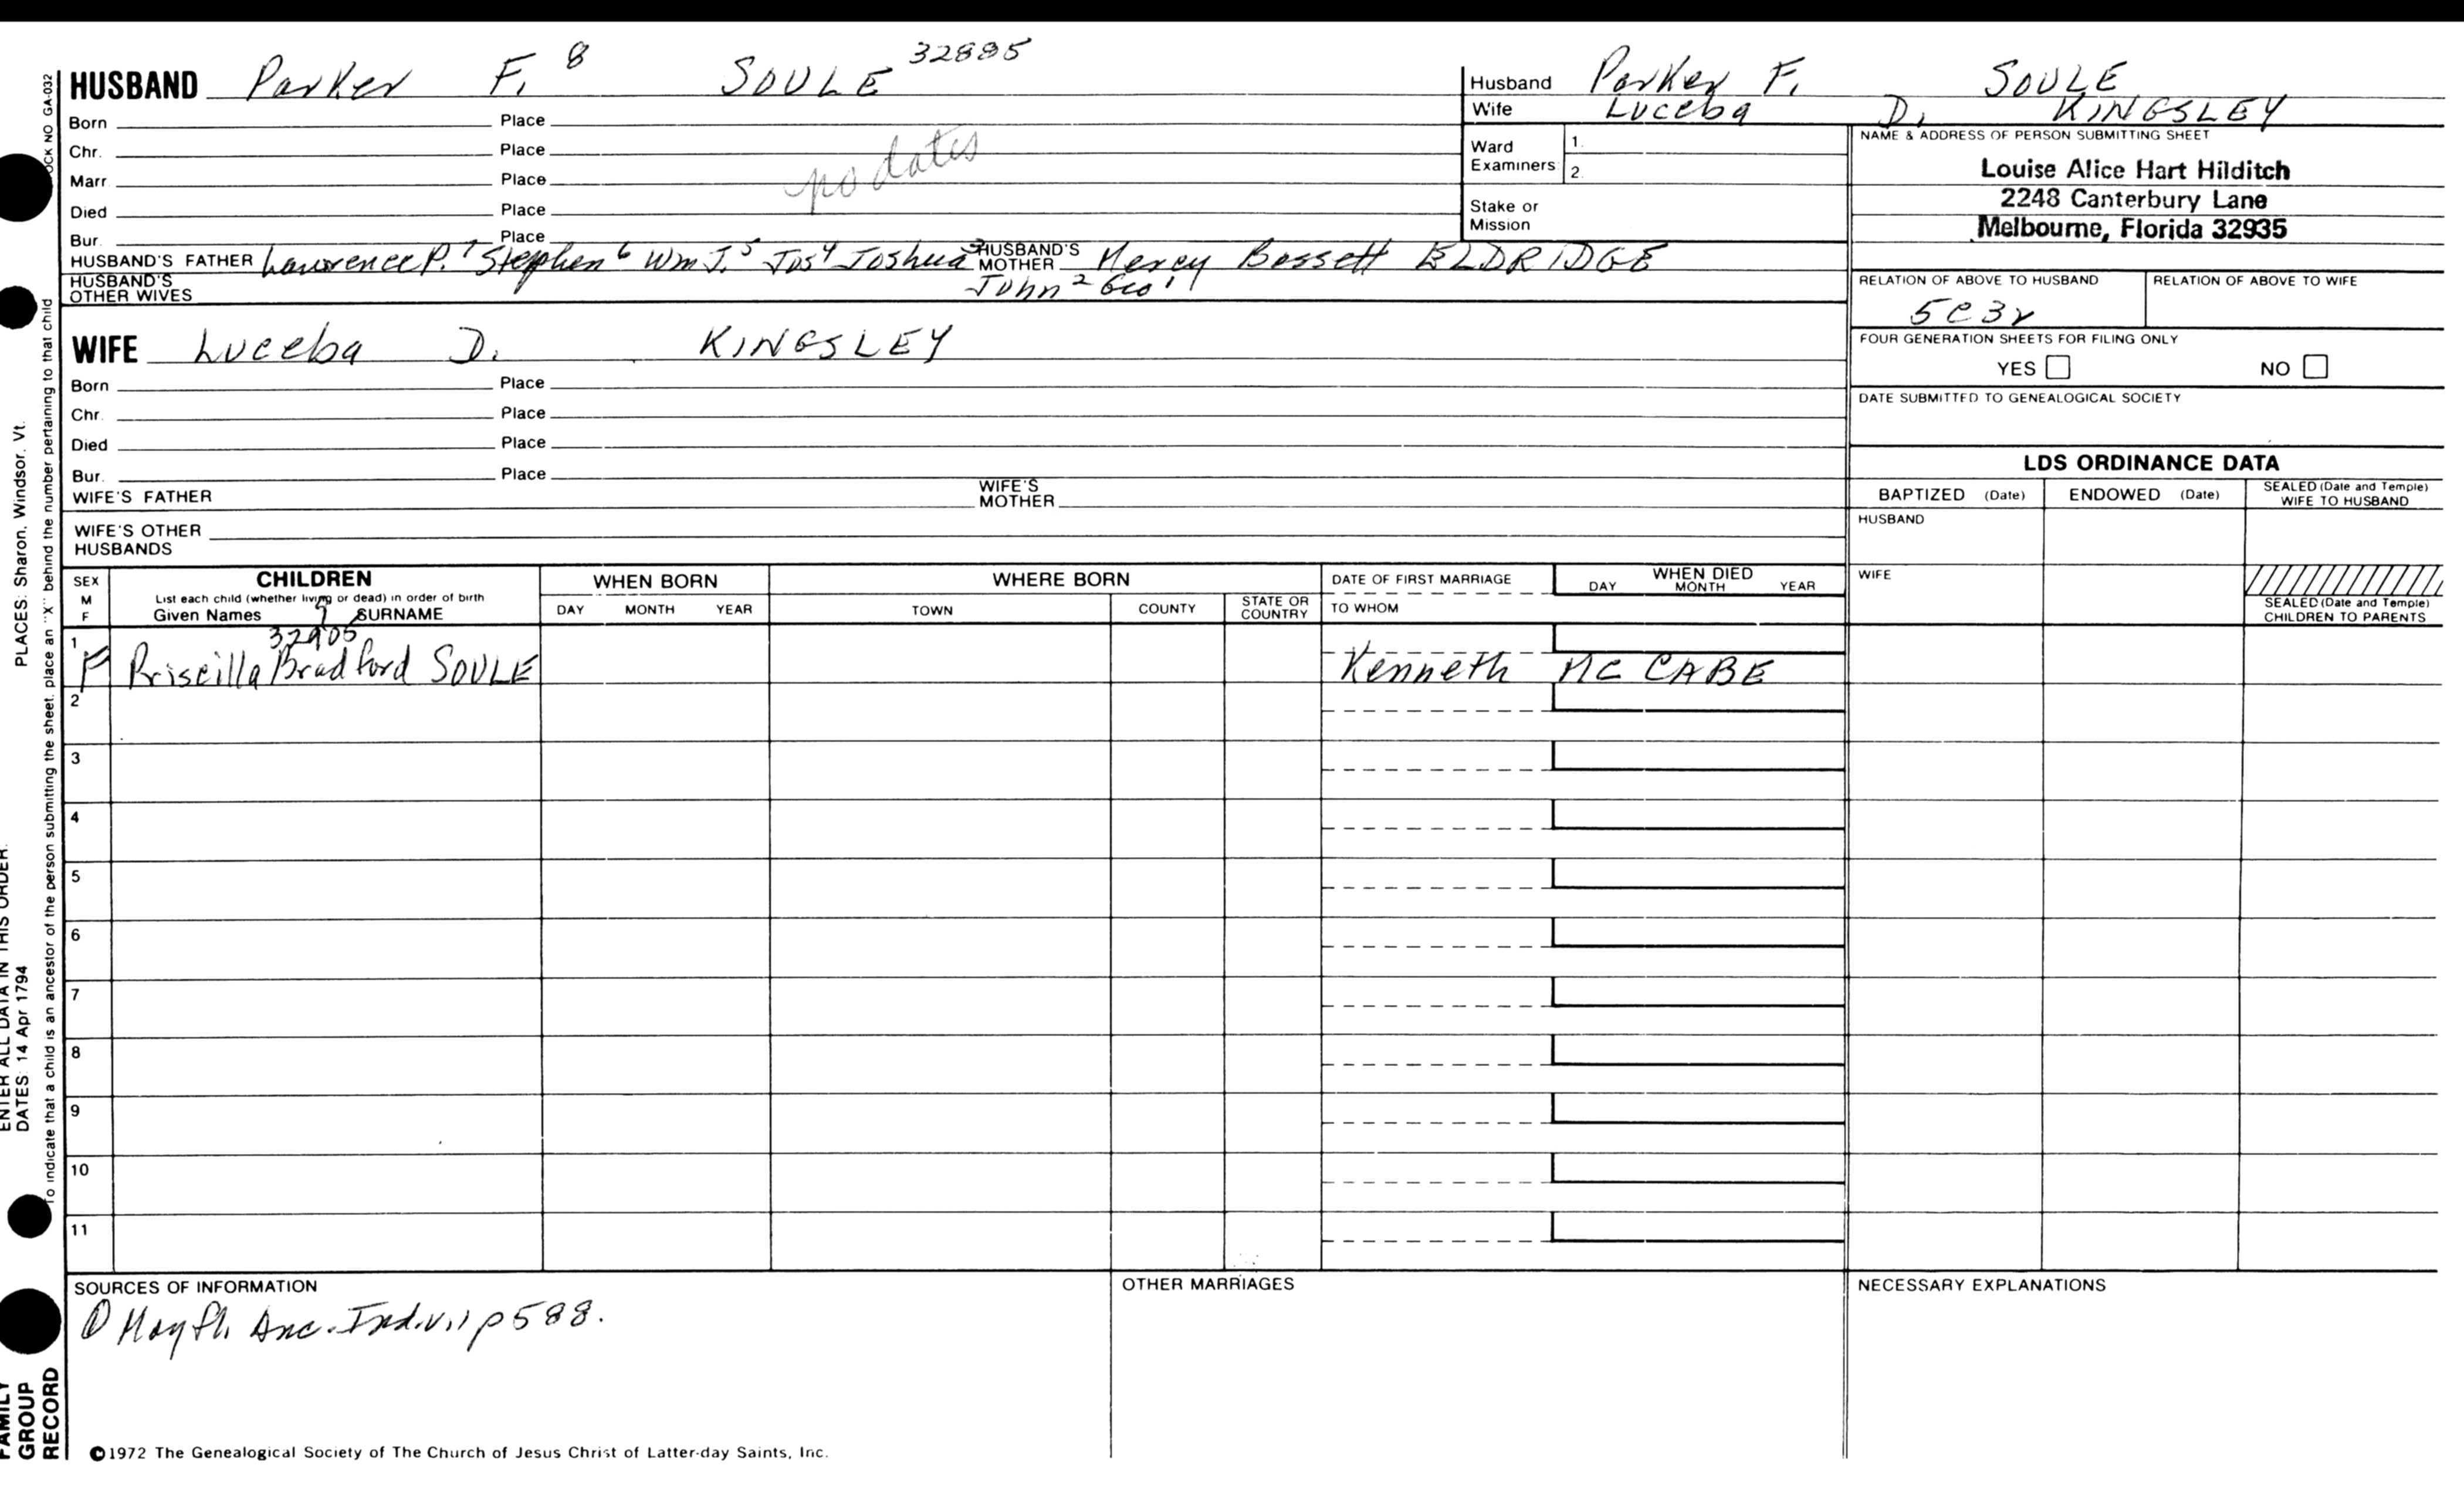 HUSBAND Parker F. 8 SOULE 32885
Born Place
Chr. Place
Marr. Place
Died Place
Bur. Place
no dates
HUSBAND'S FATHER Lawrence P. 7 Stephen 6 Wm J. 5 Jos 4 Joshua 3 HUSBAND'S MOTHER Mercy Bassett ELDRIDGE
John 2 Geo 1
HUSBAND'S OTHER WIVES
WIFE Luceba D. KINGSLEY
Born Place
Chr. Place
Died Place
Bur. Place
WIFE'S FATHER WIFE'S MOTHER
WIFE'S OTHER HUSBANDS
Husband Parker F. SOULE
Wife Luceba D. KINGSLEY
Ward Examiners 1. 2.
Stake or Mission
NAME & ADDRESS OF PERSON SUBMITTING SHEET
Louise Alice Hart Hilditch
2248 Canterbury Lane
Melbourne, Florida 32935
RELATION OF ABOVE TO HUSBAND RELATION OF ABOVE TO WIFE
5C3r
FOUR GENERATION SHEETS FOR FILING ONLY
YES NO
DATE SUBMITTED TO GENEALOGICAL SOCIETY
LDS ORDINANCE DATA
BAPTIZED (Date) ENDOWED (Date) SEALED (Date and Temple) WIFE TO HUSBAND
HUSBAND
WIFE
SEALED (Date and Temple) CHILDREN TO PARENTS
SEX M F
CHILDREN
List each child (whether living or dead) in order of birth
Given Names SURNAME
WHEN BORN
DAY MONTH YEAR
WHERE BORN
TOWN COUNTY STATE OR COUNTRY
DATE OF FIRST MARRIAGE
TO WHOM
WHEN DIED
DAY MONTH YEAR
1 F Priscilla Bradford 9 SOULE 32905 Kenneth MC CABE
2
3
4
5
6
7
8
9
10
11
SOURCES OF INFORMATION
① Mayfl. Anc. Ind. v.1 p 588.
OTHER MARRIAGES
NECESSARY EXPLANATIONS
©1972 The Genealogical Society of The Church of Jesus Christ of Latter-day Saints, Inc.
OCK NO GA-032
To indicate that a child is an ancestor of the person submitting the sheet, place an "X" behind the number pertaining to that child
ENTER ALL DATA IN THIS ORDER:
DATES: 14 Apr 1794
PLACES: Sharon, Windsor, Vt.
FAMILY
GROUP
RECORD